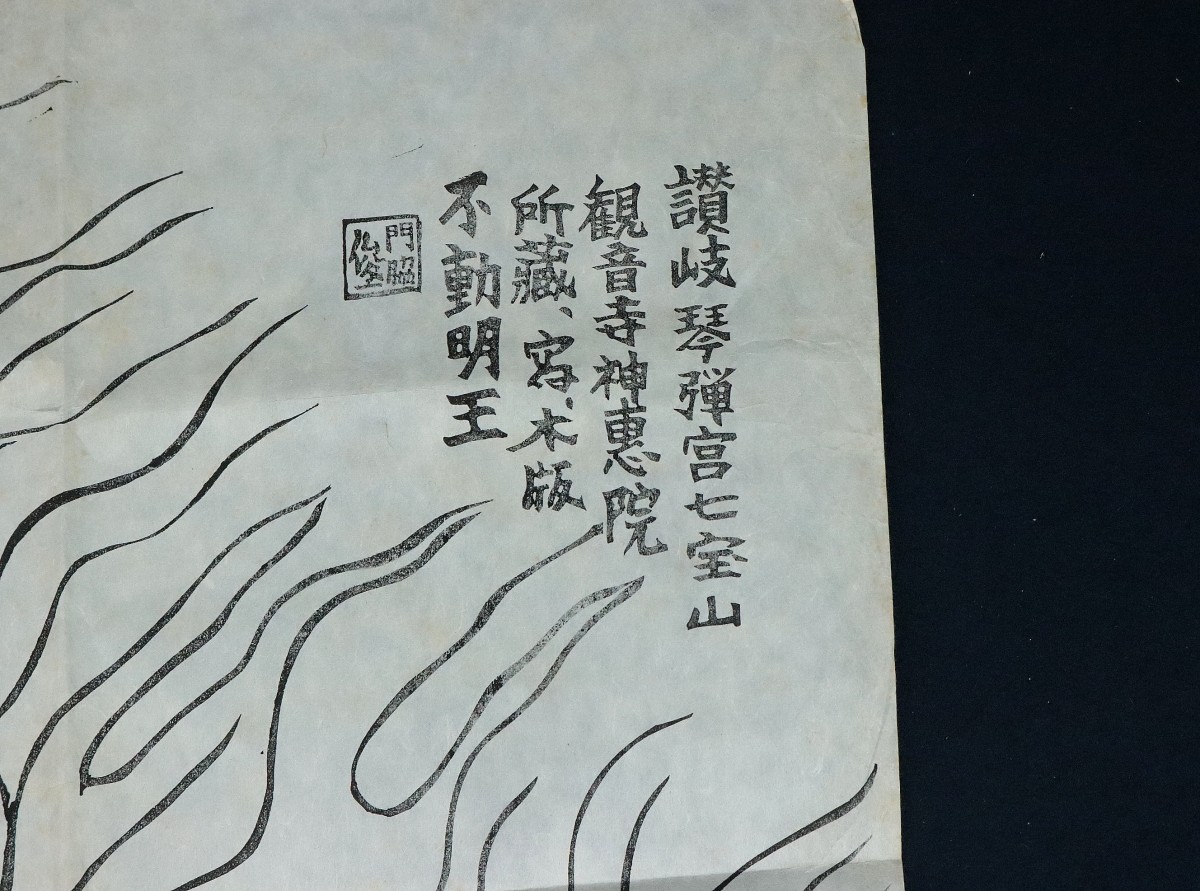 讃岐琴弾宮七宝山
観音寺神惠院
所藏、寫、木版
不動明王
門脇
俊